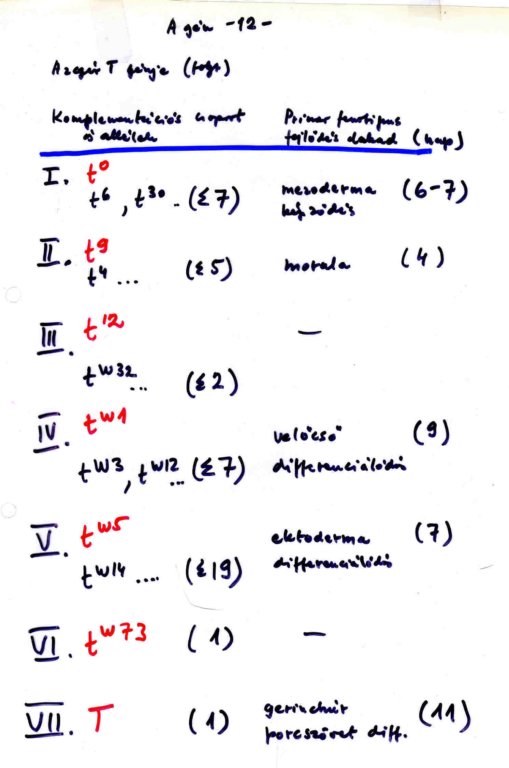 A gén -12-
Az egér T génje (folyt)
Komplementációs csoport
és allélek
Primer fenotípus
fejlődés (nap)
I. t⁰
t⁶, t³⁰ .. (Σ7)
mezoderma (6-7)
képződés
II. t⁹
t⁴ ... (Σ5)
morula (4)
III. t¹²
—
tʷ³² ... (Σ2)
IV. tʷ¹
velőcső (9)
tʷ³, tʷ¹² ... (Σ7)
differenciálódás
V. tʷ⁵
ektoderma (7)
differenciálódás
tʷ¹⁴ .... (Σ19)
VI. tʷ⁷³ (1) —
VII. T (1)
gerinchúr (11)
porcszövet diff.